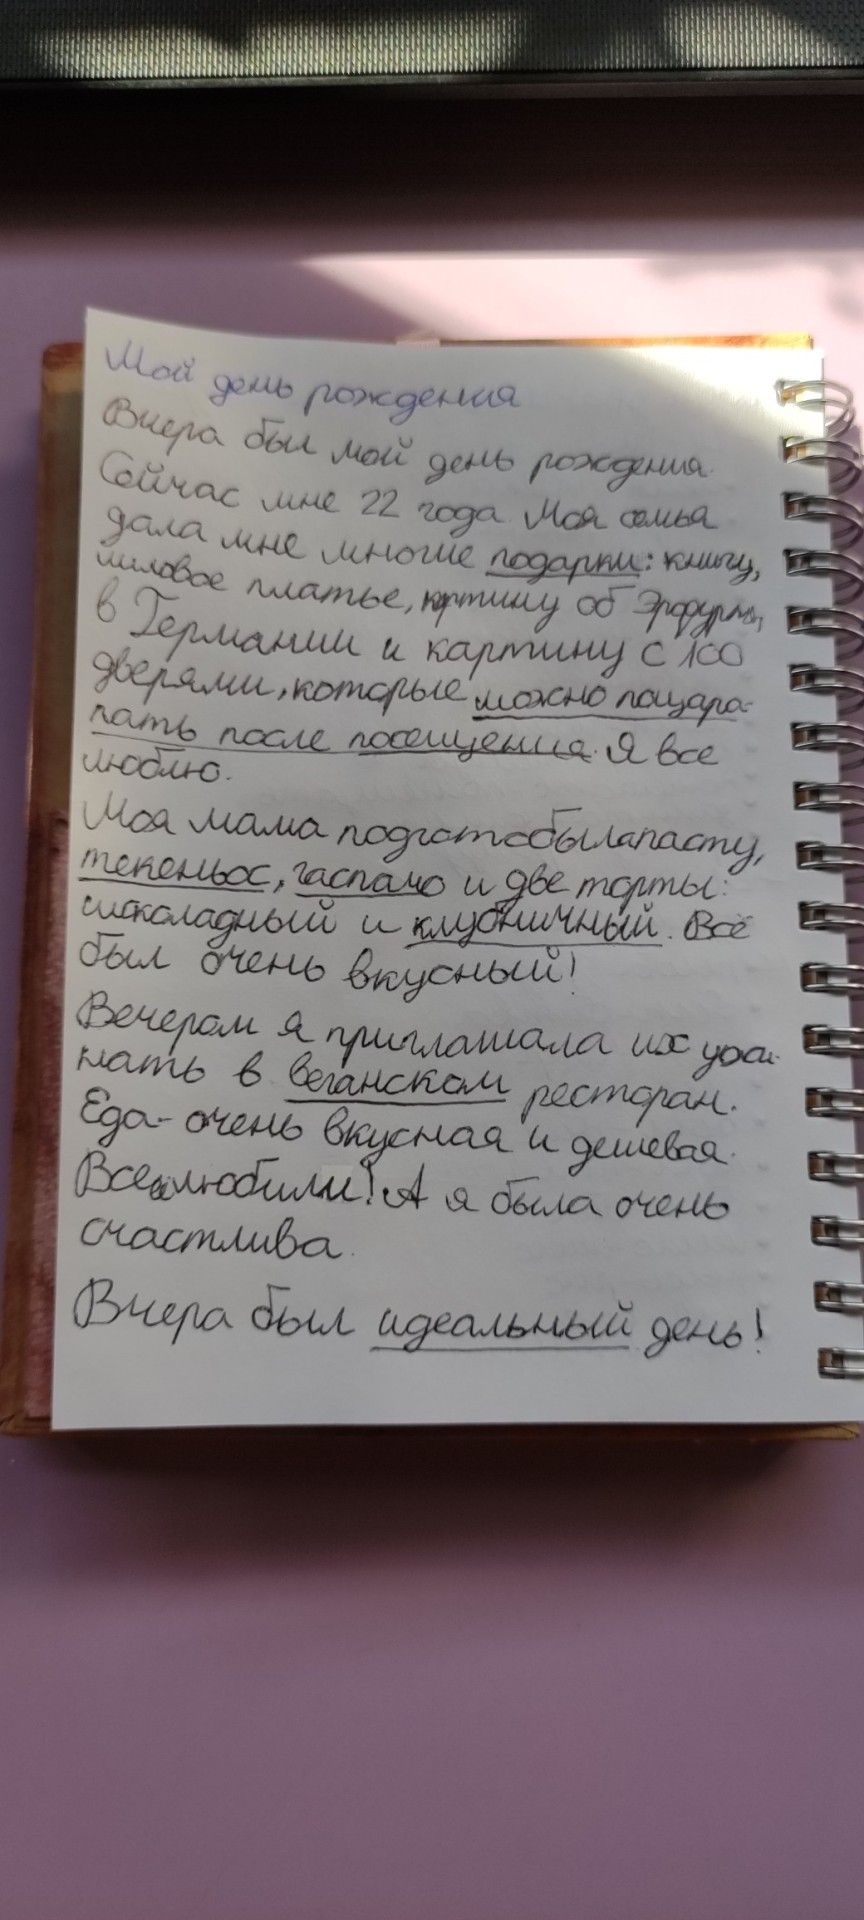 Мой день рождения
Вчера был мой день рождения.
Сейчас мне 22 года. Моя семья
дала мне многие подарки: книгу,
лиловое платье, картину об Эрфурте,
в Германии и картину с 100
дверями, которые можно поцара-
пать после посещения. Я все
люблю.
Моя мама подготобыла пасту,
текеньос, гаспачо и две торты:
шоколадный и клубничный. Всё
был очень вкусный!
Вечером я приглашала их ужи-
нать в веганском ресторан.
Еда - очень вкусная и дешевая.
Все любили! А я была очень
счастлива.
Вчера был идеальный день!